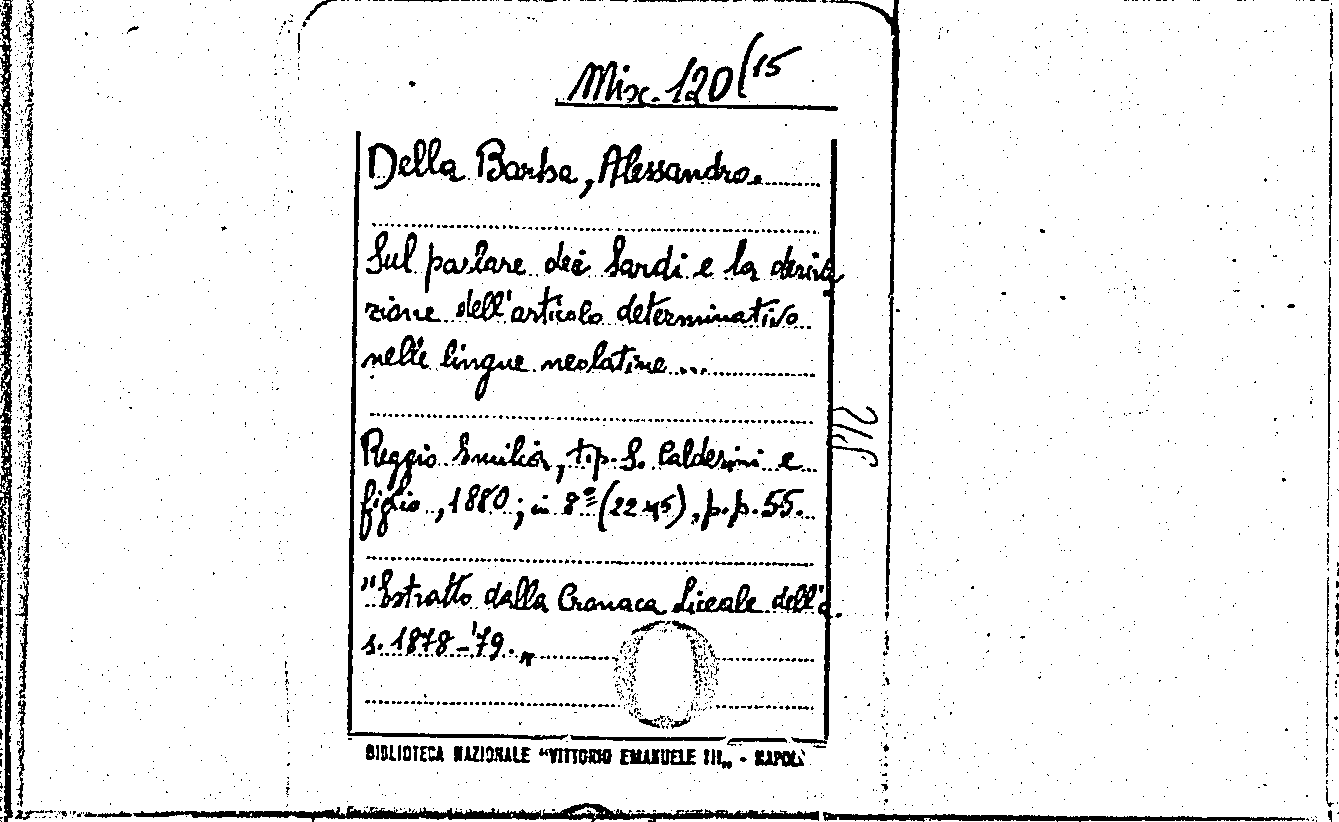 Misc. 120(15
Della Barba, Alessandro.
Sul parlare dei Sardi e la deriva
zione dell'articolo determinativo
nelle lingue neolatine ...
Reggio Emilia, tip. S. Calderini e
figlio, 1880; in 8° (22), p.p. 55.
"Estratto dalla Cronaca Liceale dell'a.
s. 1878-'79."
BIBLIOTECA NAZIONALE "VITTORIO EMANUELE III„ - NAPOLI